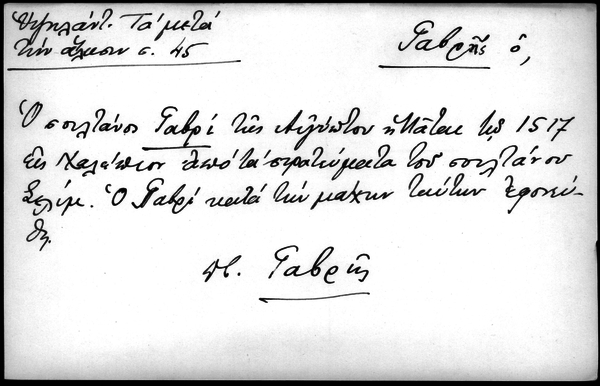 Ὑψηλάντ. Τά μετά
τήν ἅλωσιν σ. 45
Γαβρῆς ὁ,
Ὁ σουλτάνος Γαβρί τῆς Αἰγύπτου ἡττᾶται τῷ 1517
εἰς Χαλέπιον ἀπό τά στρατεύματα τοῦ σουλτάνου
Σελίμ. Ὁ Γαβρί κατά τήν μάχην ταύτην ἐφονεύ-
θη.
πβ. Γαβρῆς